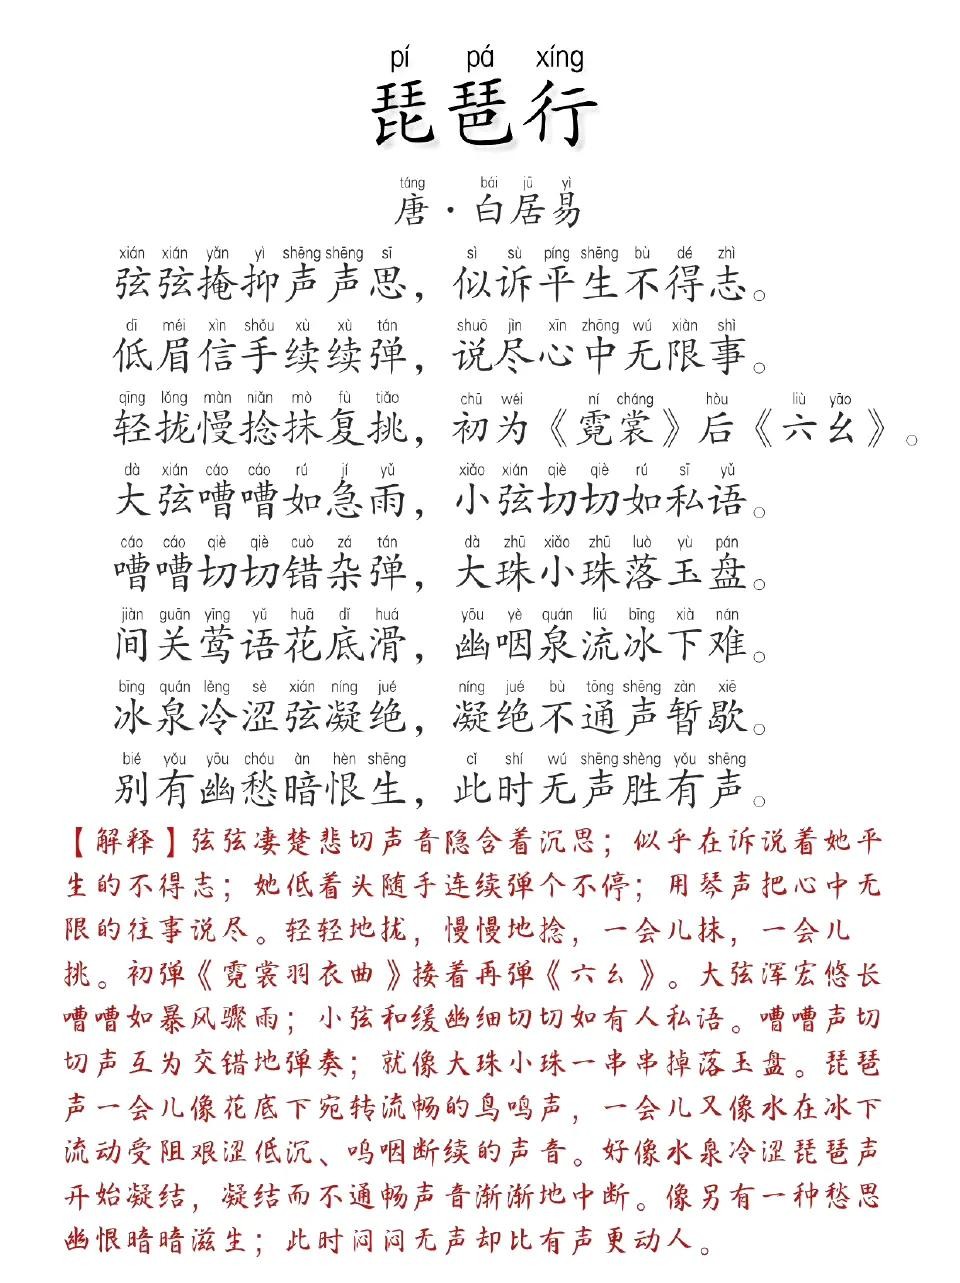 pí pá xíng
琵琶行
táng bái jū yì
唐·白居易
xián xián yǎn yì shēng shēng sī sì sù píng shēng bù dé zhì
弦弦掩抑声声思，似诉平生不得志。
dī méi xìn shǒu xù xù tán shuō jìn xīn zhōng wú xiàn shì
低眉信手续续弹，说尽心中无限事。
qīng lǒng màn niǎn mò fù tiǎo chū wéi ní cháng hòu liù yāo
轻拢慢捻抹复挑，初为《霓裳》后《六幺》。
dà xián cáo cáo rú jí yǔ xiǎo xián qiè qiè rú sī yǔ
大弦嘈嘈如急雨，小弦切切如私语。
cáo cáo qiè qiè cuò zá tán dà zhū xiǎo zhū luò yù pán
嘈嘈切切错杂弹，大珠小珠落玉盘。
jiàn guān yīng yǔ huā dǐ huá yōu yè quán liú bīng xià nán
间关莺语花底滑，幽咽泉流冰下难。
bīng quán lěng sè xián níng jué níng jué bù tōng shēng zàn xiē
冰泉冷涩弦凝绝，凝绝不通声暂歇。
bié yǒu yōu chóu àn hèn shēng cǐ shí wú shēng shèng yǒu shēng
别有幽愁暗恨生，此时无声胜有声。
【解释】弦弦凄楚悲切声音隐含着沉思；似乎在诉说着她平
生的不得志；她低着头随手连续弹个不停；用琴声把心中无
限的往事说尽。轻轻地拢，慢慢地捻，一会儿抹，一会儿
挑。初弹《霓裳羽衣曲》接着再弹《六幺》。大弦浑宏悠长
嘈嘈如暴风骤雨；小弦和缓幽细切切如有人私语。嘈嘈声切
切声互为交错地弹奏；就像大珠小珠一串串掉落玉盘。琵琶
声一会儿像花底下宛转流畅的鸟鸣声，一会儿又像水在冰下
流动受阻艰涩低沉、呜咽断续的声音。好像水泉冷涩琵琶声
开始凝结，凝结而不通畅声音渐渐地中断。像另有一种愁思
幽恨暗暗滋生；此时闷闷无声却比有声更动人。